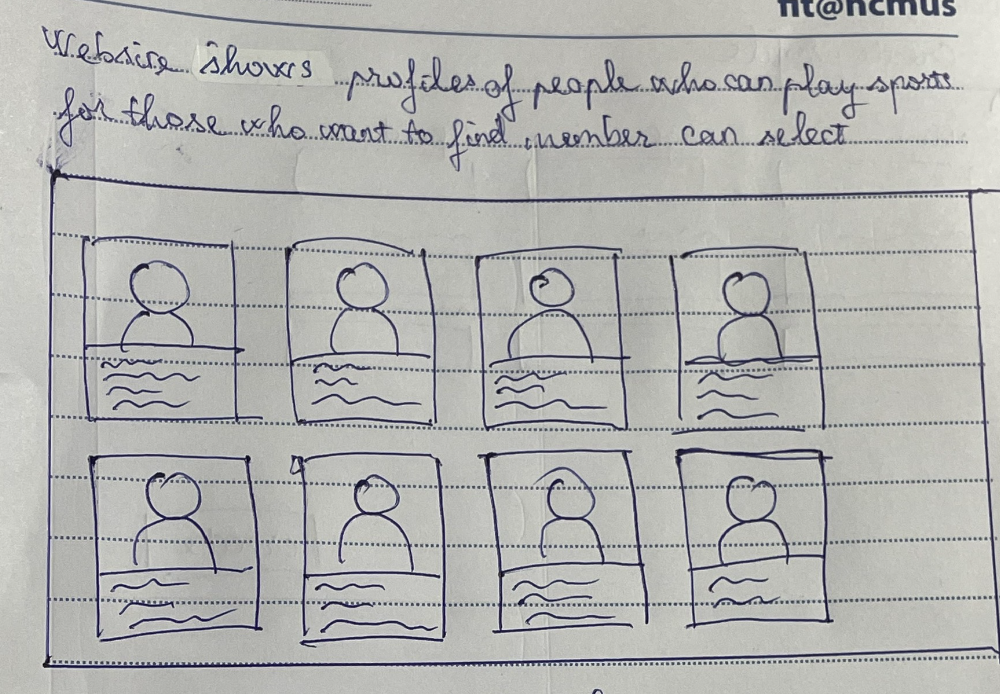 fit@hcmus
Website shows profiles of people who can play sports
for those who want to find member can select